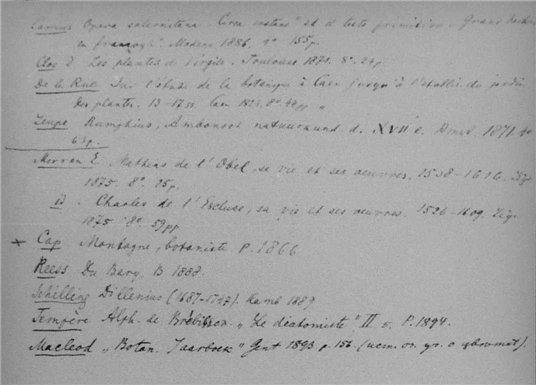 Camus Opera salernitana "Circa instans" ed il testo primitivo "Grand herbier
en françoys". Modena 1886. 4° 155 p.
Clos D. Les plantes de Virgile. Toulouse 1871. 8°. 24 p
De la Rue. Sur l'étude de la botanique à Caen jusqu'à l'établis. du jardin
des plantes. Caen 8°.
Leupe Rumphius, Ambonsch natuurkund. d. XVII e. Amst. 1871. 4°
63 p.
Morren E. Mathias de l'Obel, sa vie et ses oeuvres. 1538-1616. Liége
1875. 8°.
Id. Charles de l'Escluse, sa vie et ses oeuvres. 1526-1609. Liége
1875. 8°. 59 pp
Cap Montagne, botaniste. P. 1866
Reess De Bary, B 1888.
Schilling Dillenius (1687-1747). Hamb 1889
Tempère Alph. de Brébisson. "Le diatomiste" II. P. 1894.
Macleod "Botan. Jaarboek" Gent 1893. p. 156.